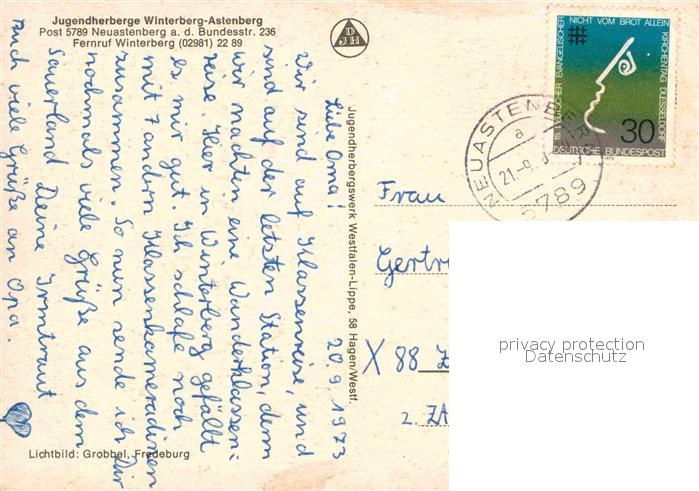 Jugendherberge Winterberg-Astenberg
Post 5789 Neuastenberg a. d. Bundesstr. 236
Fernruf Winterberg (02981) 22 89
DJH
20.9.1973
Liebe Oma!
Wir sind auf Klassenreise, und
sind auf der letzten Station, denn
wir machten eine Wanderklassen-
reise. Hier in Winterberg gefällt
es mir gut. Ich schlafe noch
mit 7 andern Klassenkameradinnen
zusammen. So nun sende ich Dir
nochmals viele Grüße aus dem
Sauerland Deine Irmtraut
Auch viele Grüße an Opa.
Lichtbild: Grobbel, Fredeburg
Jugendherbergswerk Westfalen-Lippe, 58 Hagen/Westf.
15. DEUTSCHER EVANGELISCHER KIRCHENTAG DUESSELDORF
NICHT VOM BROT ALLEIN
30
DEUTSCHE BUNDESPOST
1973
NEUASTENBERG
a
21.-9.
5789
Frau
Gertr
X 88
2. ZA
privacy protection
Datenschutz